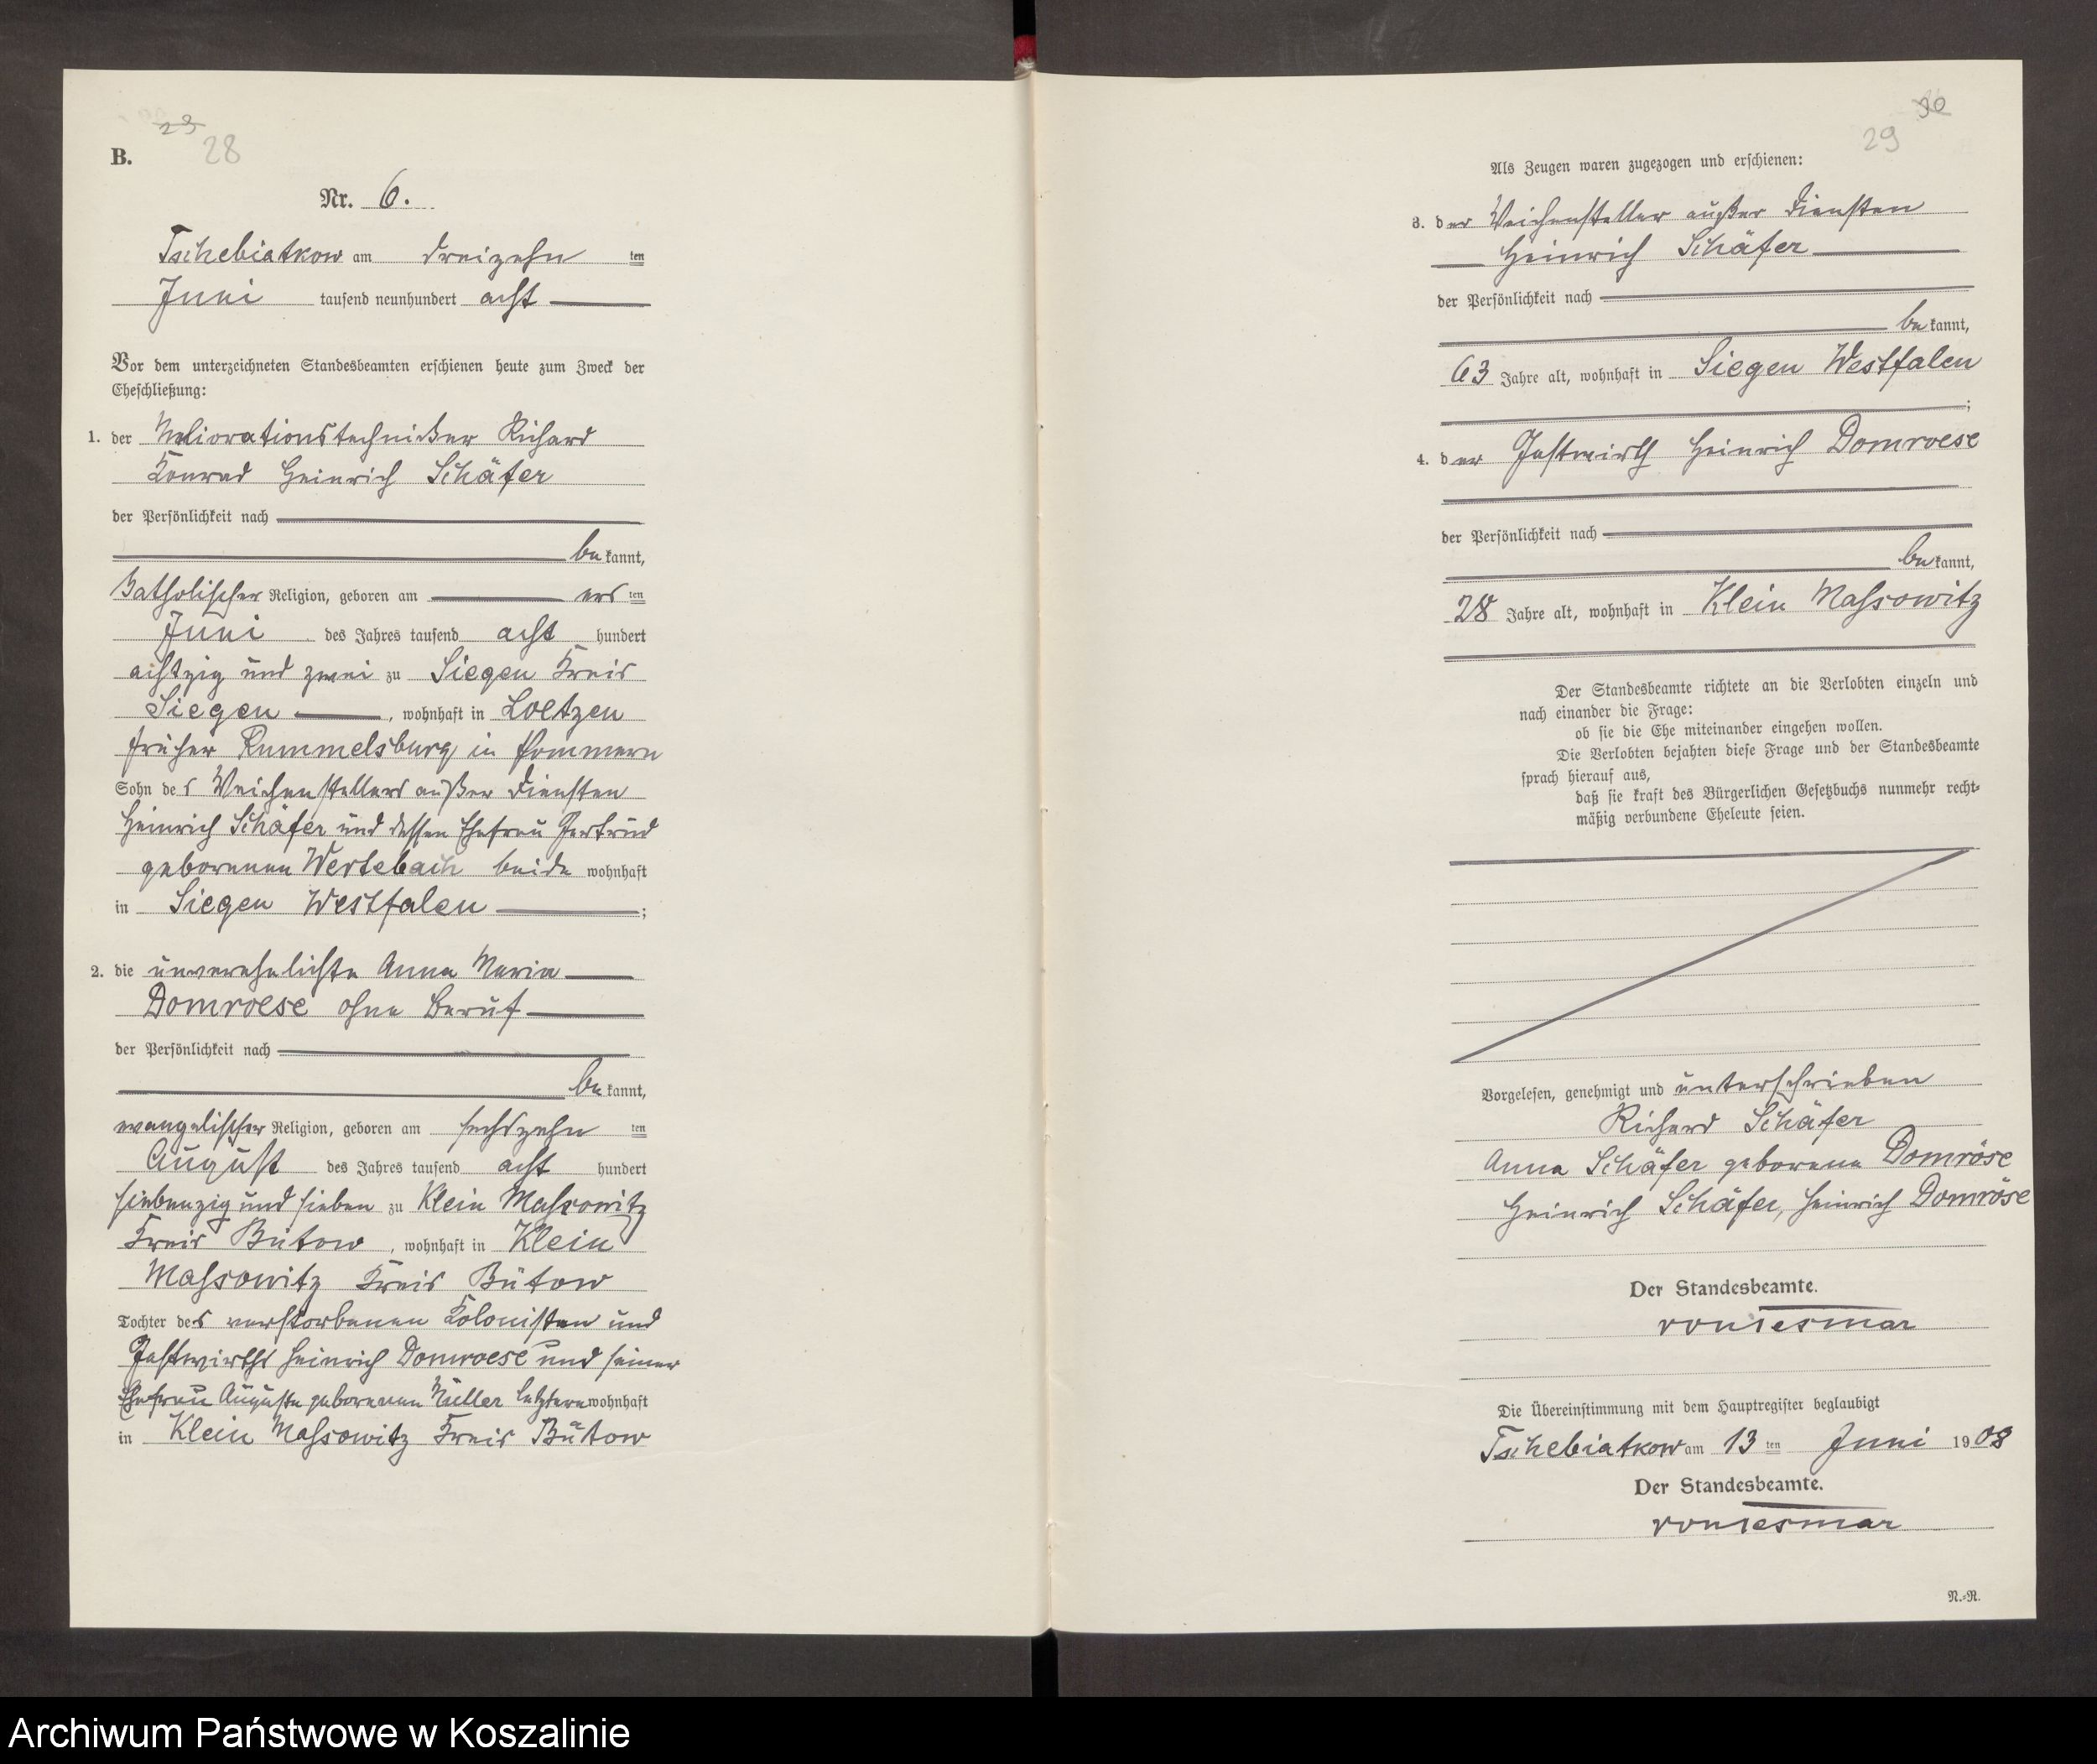 B.
29
28
Nr. 6.
Tschebiatkow am dreizehn ten
Juni tausend neunhundert acht
Vor dem unterzeichneten Standesbeamten erschienen heute zum Zweck der
Eheschließung:
1. der Meliorationstechniker Richard
Konrad Heinrich Schäfer
der Persönlichkeit nach
be kannt,
katholischer Religion, geboren am ers ten
Juni des Jahres tausend acht hundert
achtzig und zwei zu Siegen Kreis
Siegen, wohnhaft in Loetzen
früher Rummelsburg in Pommern
Sohn des Weichenstellers außer Diensten
Heinrich Schäfer und dessen Ehefrau Gertrud
geborenen Wertebach beide wohnhaft
in Siegen Westfalen;
2. die unverehelichte Anna Maria
Domroese ohne Beruf
der Persönlichkeit nach
be kannt,
evangelischer Religion, geboren am sechszehn ten
August des Jahres tausend acht hundert
siebenzig und sieben zu Klein Massowitz
Kreis Bütow, wohnhaft in Klein
Massowitz Kreis Bütow
Tochter des verstorbenen Kolonisten und
Gastwirths Heinrich Domroese und seiner
Ehefrau Auguste geborenen Müller letztere wohnhaft
in Klein Massowitz Kreis Bütow
30
29
Als Zeugen waren zugezogen und erschienen:
3. der Weichensteller außer Diensten
Heinrich Schäfer
der Persönlichkeit nach
be kannt,
63 Jahre alt, wohnhaft in Siegen Westfalen
;
4. der Gastwirth Heinrich Domroese
der Persönlichkeit nach
be kannt,
28 Jahre alt, wohnhaft in Klein Massowitz
Der Standesbeamte richtete an die Verlobten einzeln und
nach einander die Frage:
ob sie die Ehe miteinander eingehen wollen.
Die Verlobten bejahten diese Frage und der Standesbeamte
sprach hierauf aus,
daß sie kraft des Bürgerlichen Gesetzbuchs nunmehr recht-
mäßig verbundene Eheleute seien.
Vorgelesen, genehmigt und unterschrieben
Richard Schäfer
Anna Schäfer geborene Domröse
Heinrich Schäfer, Heinrich Domröse
Der Standesbeamte.
von Tesmar
Die Übereinstimmung mit dem Hauptregister beglaubigt
Tschebiatkow am 13 ten Juni 1908
Der Standesbeamte.
von Tesmar
N.-R.
Archiwum Państwowe w Koszalinie